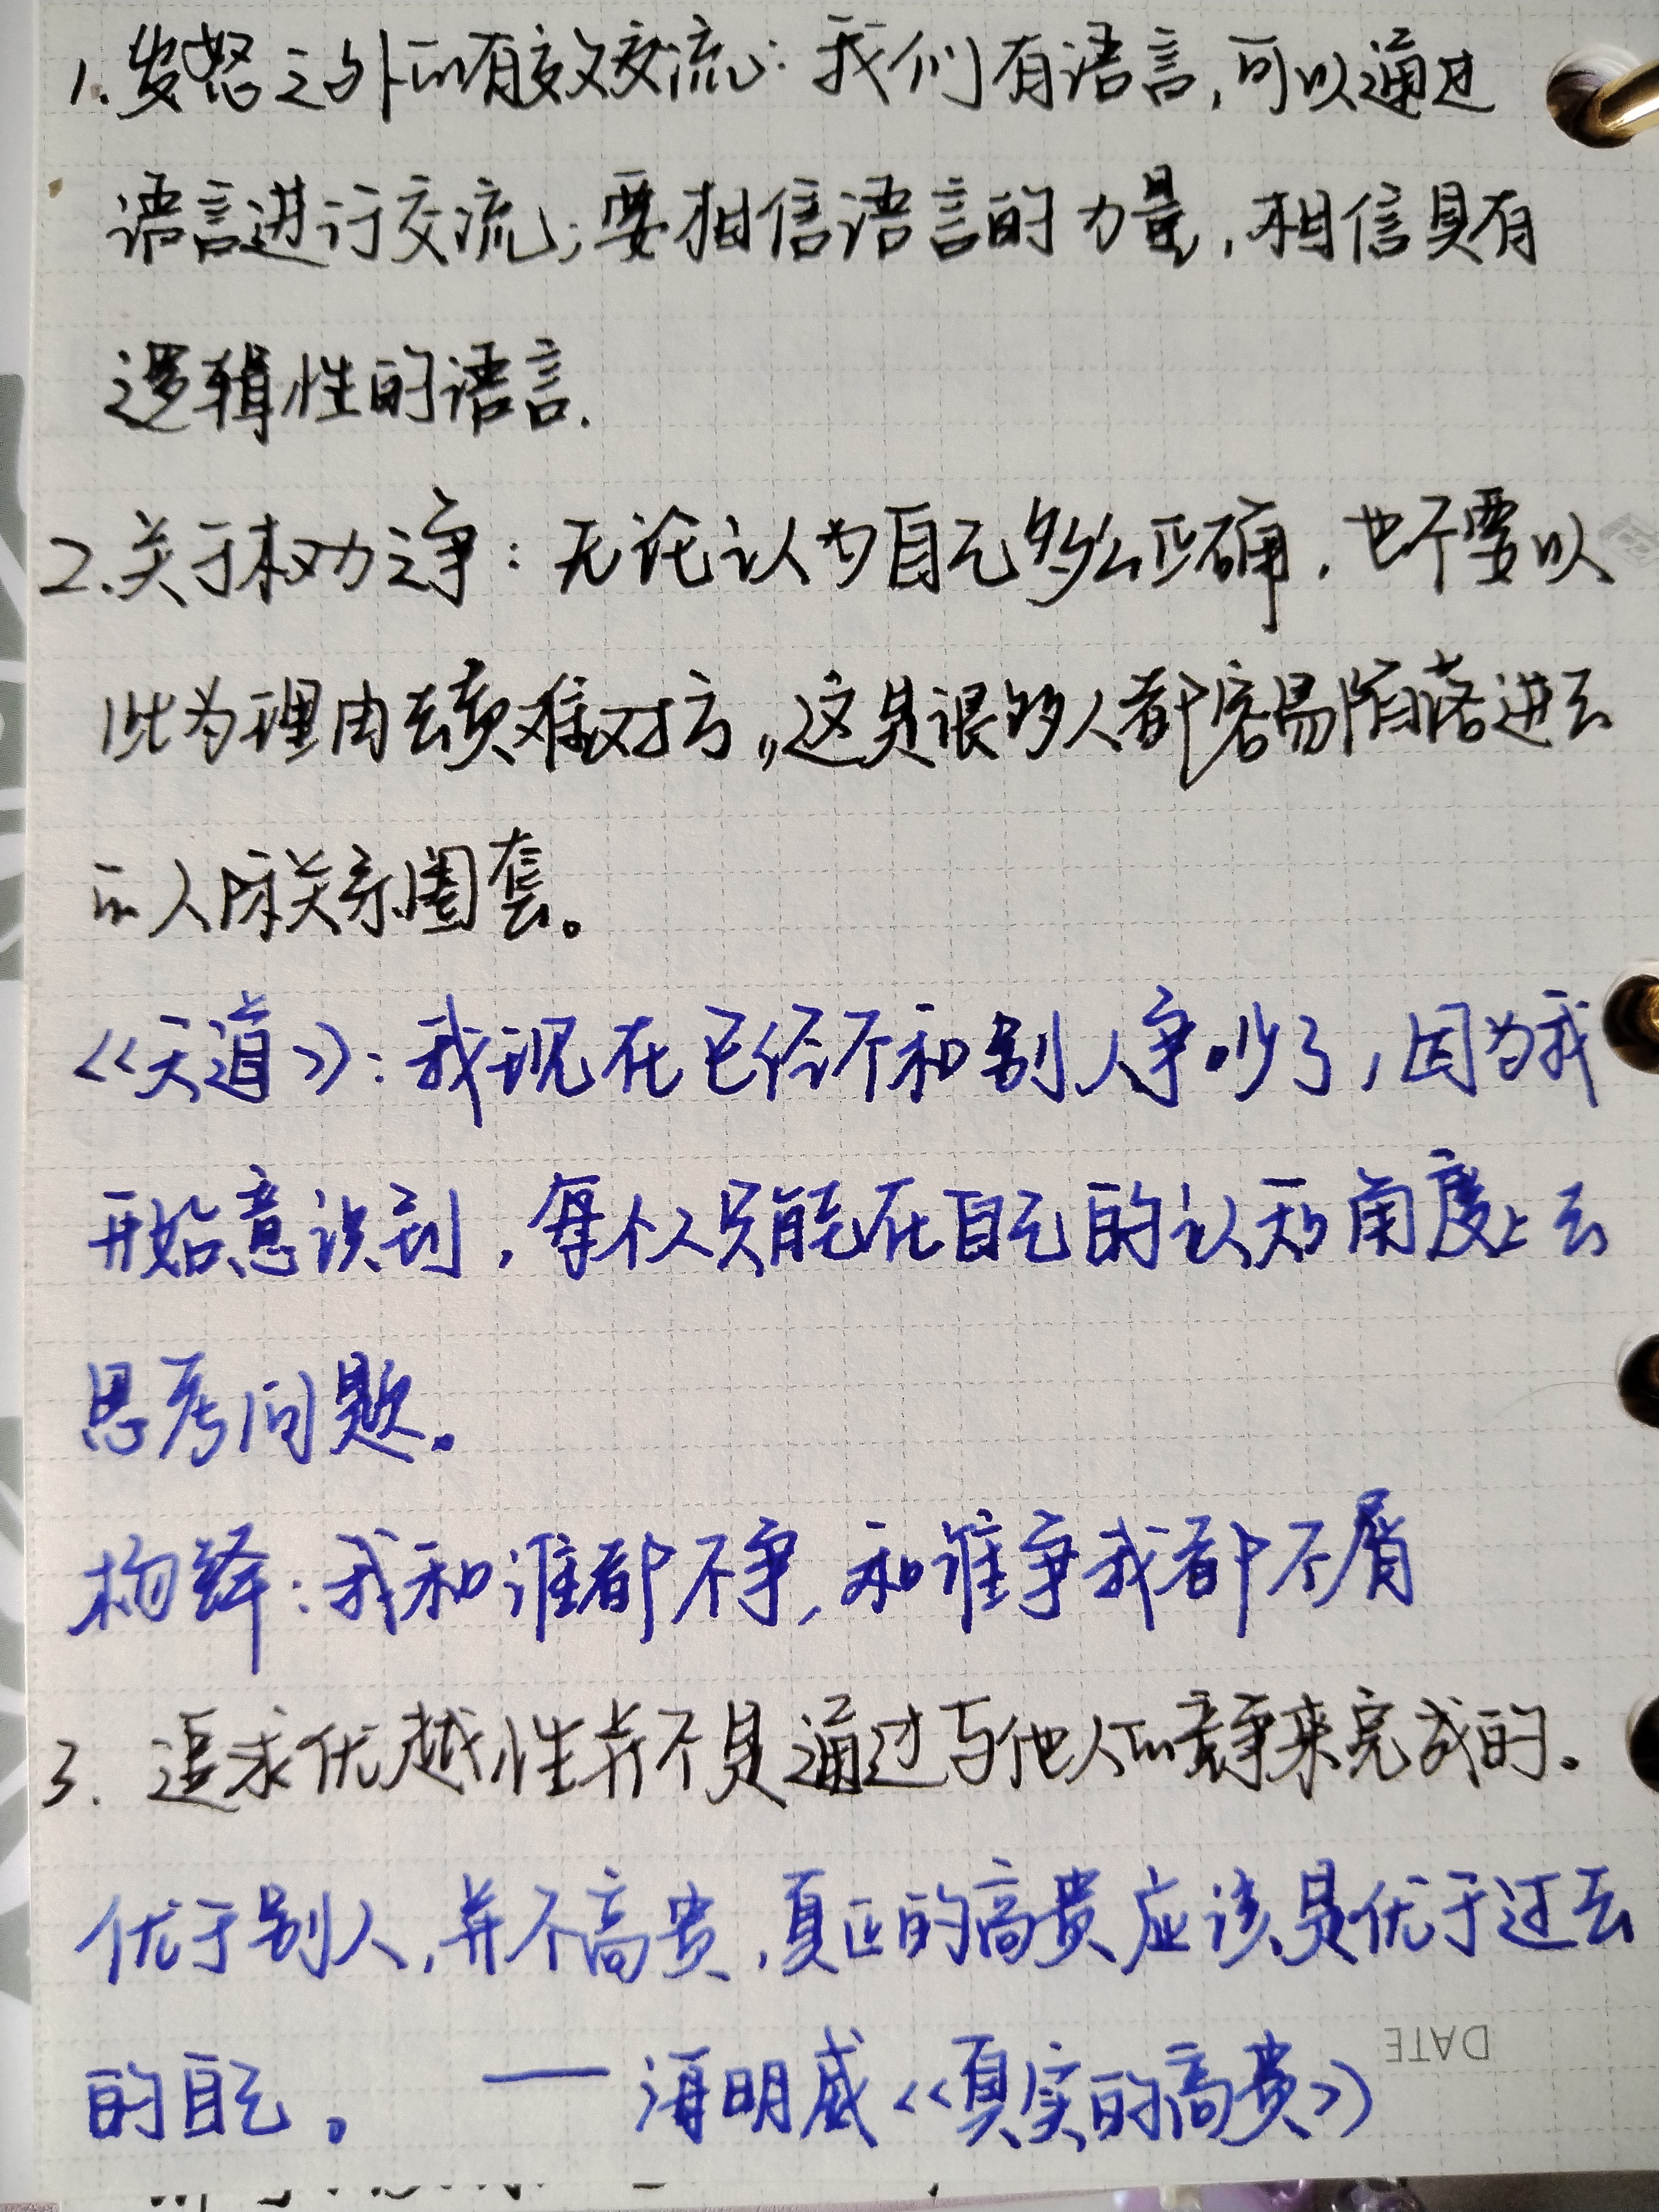 1.发怒之外的有效交流：我们有语言,可以通过
语言进行交流；要相信语言的力量,相信具有
逻辑性的语言.
2.关于权力之争：无论认为自己多么正确，也不要以
此为理由去责难对方,,这是很多人都容易陷落进去
的人际关系圈套。
<<天道>>：我现在已经不和别人争吵了，因为我
开始意识到，每个人只能在自己的认知角度上去
思考问题。
杨绛：我和谁都不争,和谁争我都不屑
3. 追求优越性并不是通过与他人的竞争来完成的。
优于别人,并不高贵,真正的高贵应该是优于过去
的自己。 ——海明威<<真实的高贵>>
DATE